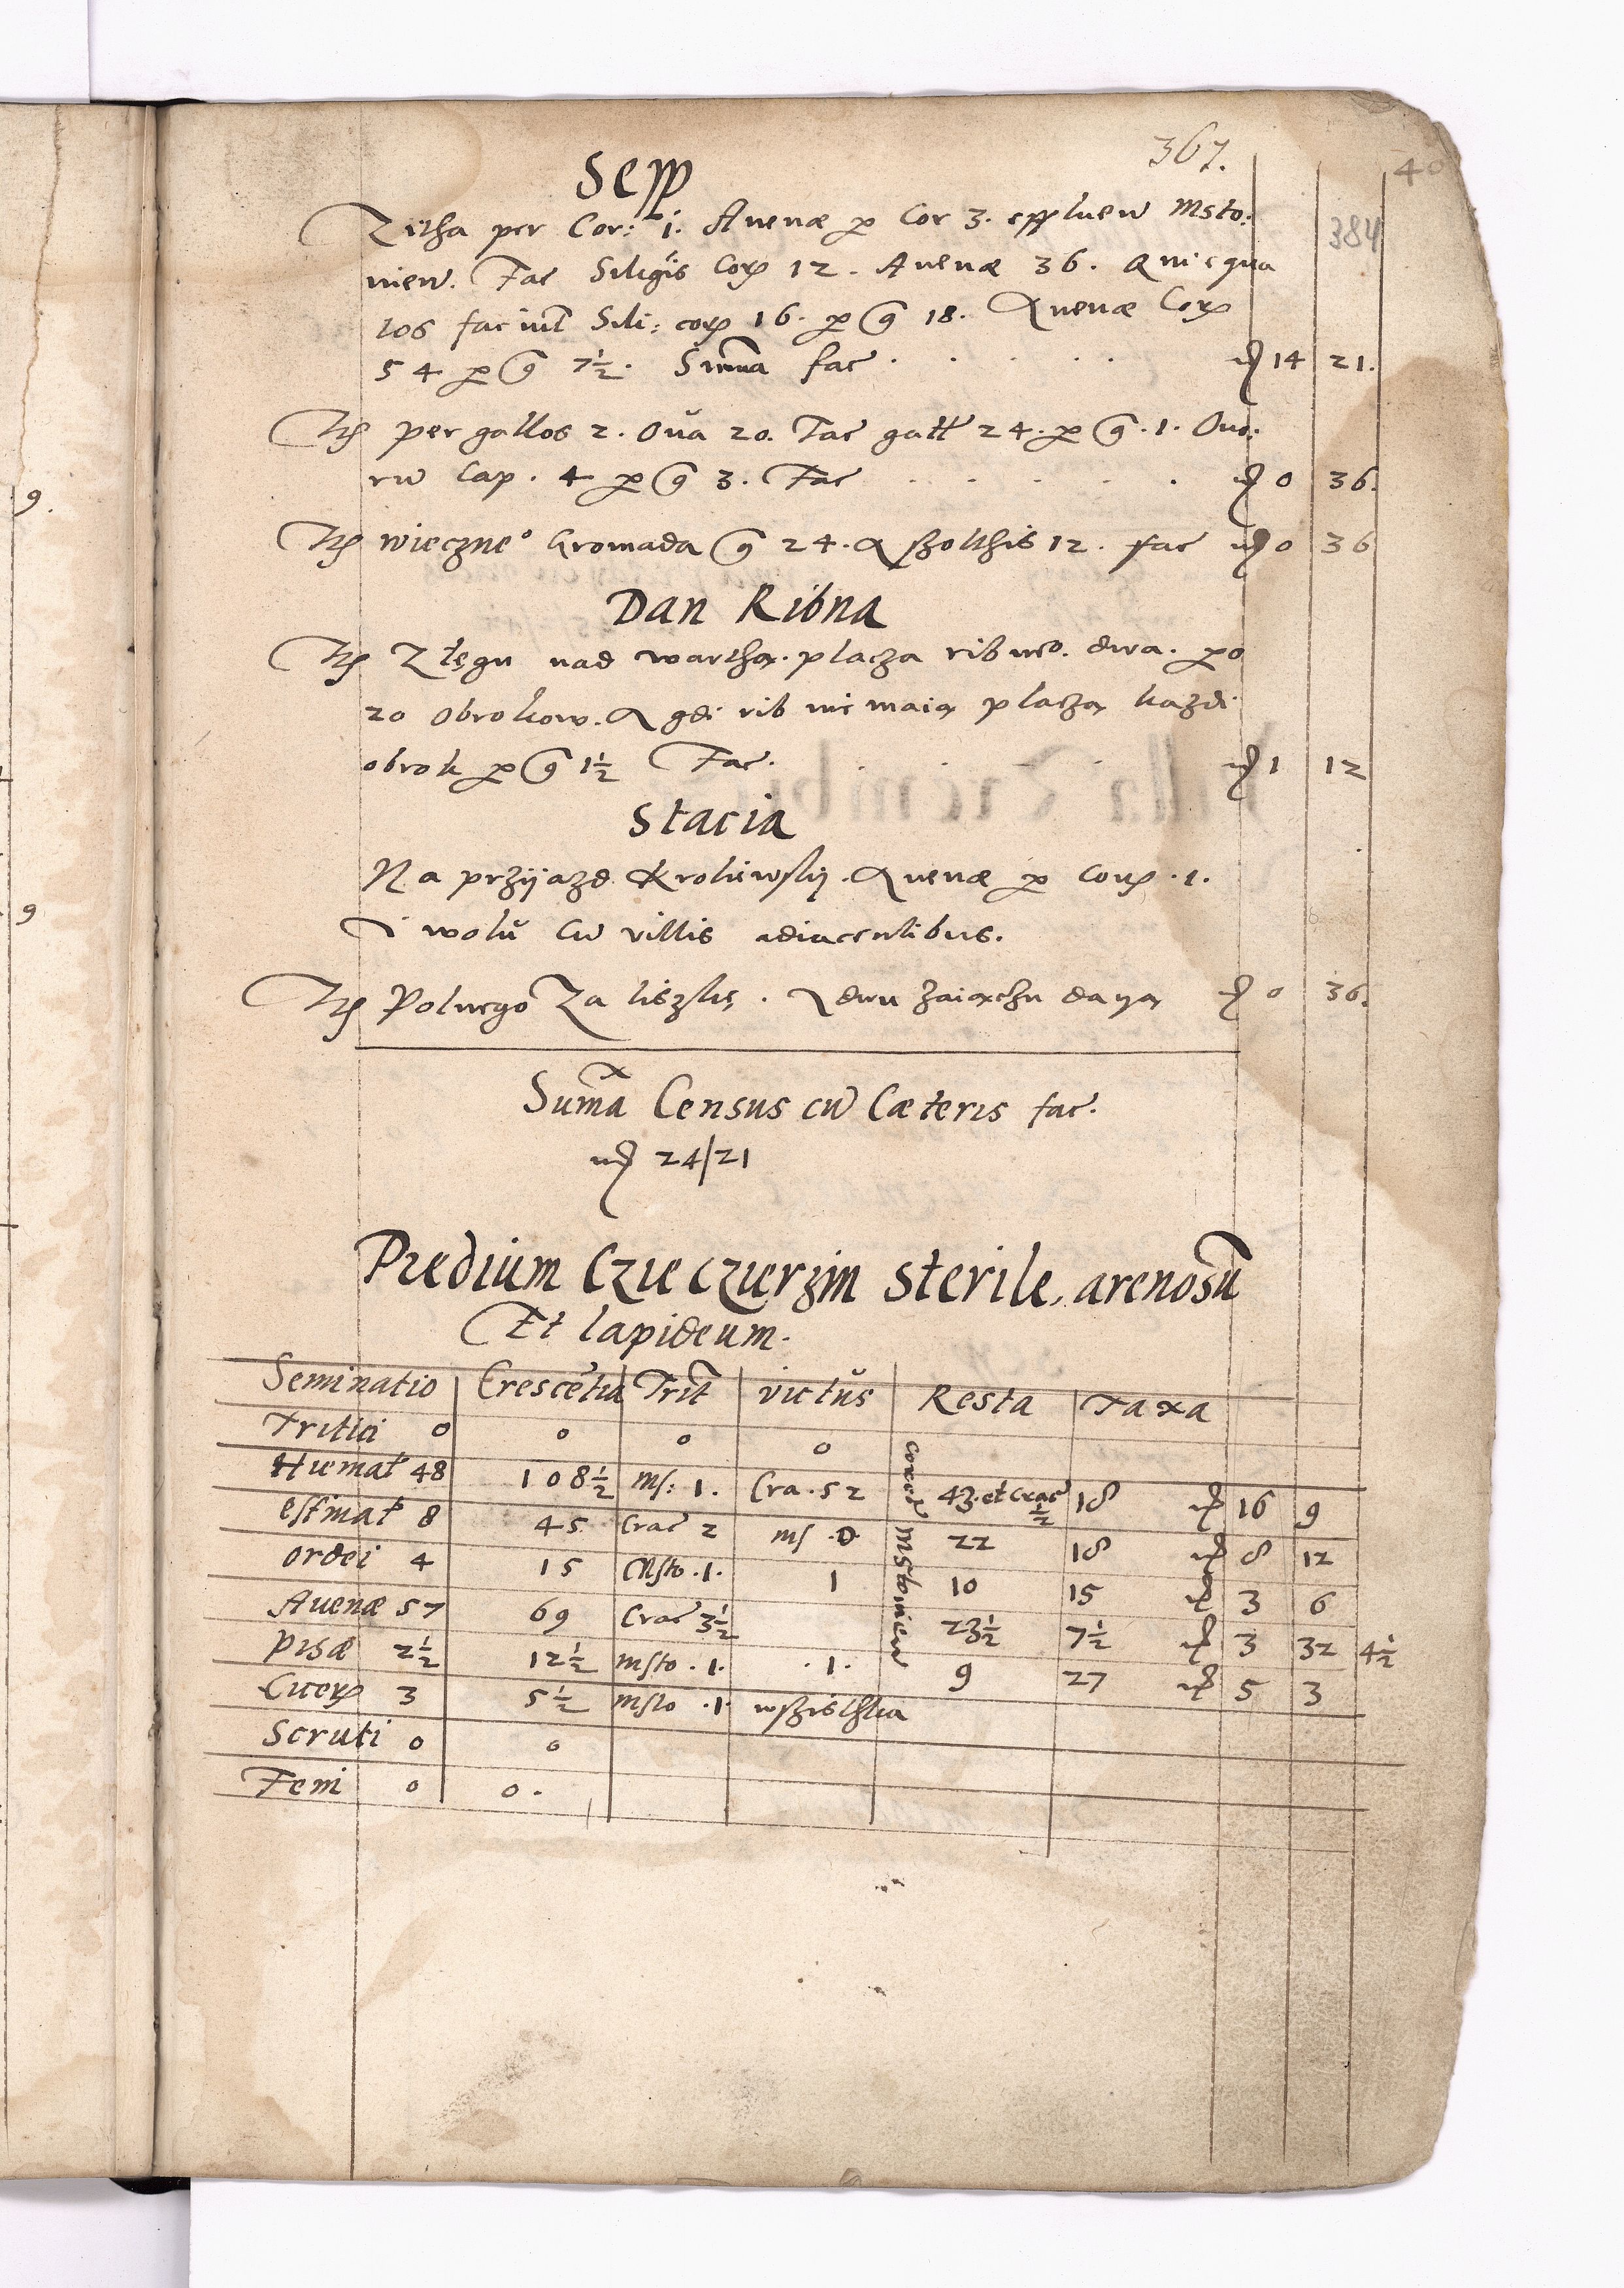 367.
40
384
Sepp
Zitha per Cor: 1. Auenæ p Cor 3. Msto:
nien. Fac Siligis Cor 12. Auenæ 36. Qui equa
los faciunt Sili: cor 16. p g 18. Auenæ Cor
54 p g 7½. Summa fac . . . . . m 14 21.
Itē per gallos 2. Oua 20. Fac gall 24. p g .1. Ouo:
rū Cap . 4 p g 3. Fac . . . . . . m 0 36.
Itē wieczne° Gromada g 24. A szolthis 12. fac m 0 36
Dan Ribna
Itē Z łęgu nad warthą. placzą ribne°. dwa. po
20 obrokow. A gdi rib nie maią placzą kazdi
obrok p g 1½ Fac. m 1 12
Stacia
Na przijazd Krolewsky. Auenæ p Cor .1.
I wolu cū villis adiacentibus.
Itē Polnego Za liszkę . A dwu zaiączu dayą m 0 36.
Suma Census cū Cæteris fac.
m 24/21
Predium Czieczierzin sterile, arenosū
Et lapideum.
Seminatio Crescētia Trit victūs Resta Taxa
Tritici 0 0 0 0
Hiemat 48 108½ ms: 1. Cra. 52 43. et crac ½ 18 m 16 9
estinat 8 45 Crac 2 ms .0 22 18 m 8 12
ordei 4 15 Msto .1. 1 10 15 m 3 6
Auenæ 57 69 Crac 3½ 23½ 7½ m 3 32 4½
pisæ 2½ 12½ msto .1. .1. 9 27 m 5 3
Cicer 3 5½ msto .1. wszisthka
Scruti 0 0
Feni 0 0.
Mstonien
9.
9